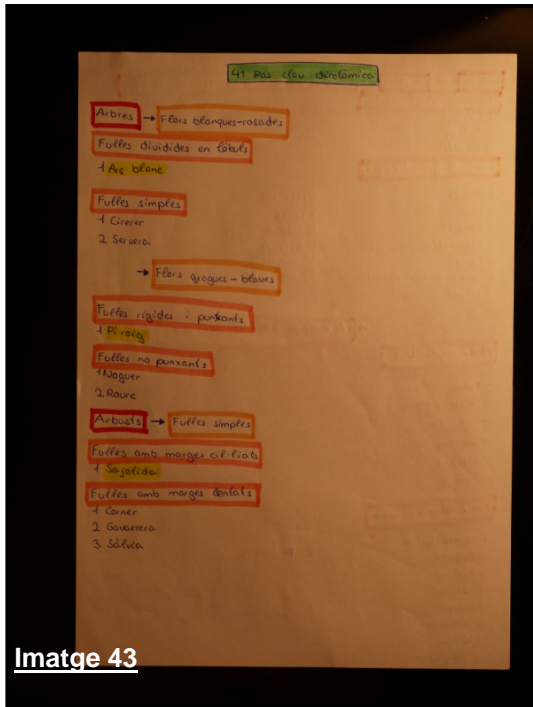 4t Pas clau dicotòmica
Arbres → Flors blanques-rosades
Fulles dividides en lòbuls
1 Arç blanc
Fulles simples
1 Cirerer
2 Servera
→ Flors grogues - blaves
Fulles rígides i punxants
1 Pi roig
Fulles no punxants
1 Noguer
2 Roure
Arbusts → Fulles simples
Fulles amb marges cil·liats
1 Sajolida
Fulles amb marges dentats
1 Corner
2 Gavarrera
3 Sàlvia
Imatge 43